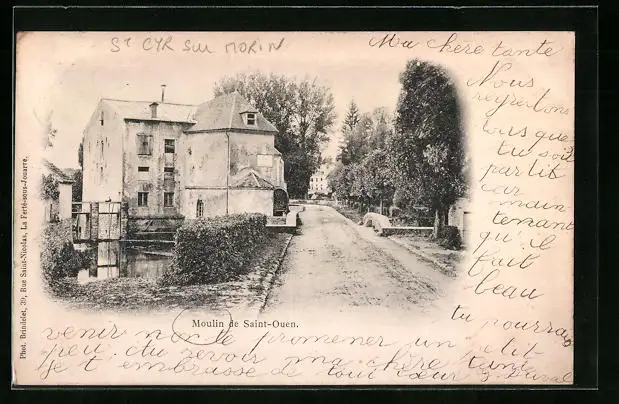 St CYR sur MORIN
Ma chère tante
Nous
regretons
tous que
tu soit
partit
car
main
tenant
qu'il
fait
beau
tu pourrai
venir nous promener un petit
peu
ma chère tante
je t'embrasse de tout cœur
Moulin de Saint-Ouen.
Phot. Brindelet, 39, Rue Saint-Nicolas, La Ferté-sous-Jouarre.